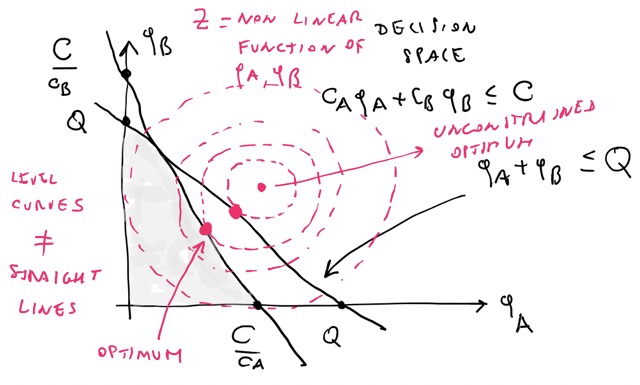 Z = NON LINEAR
FUNCTION OF
φA, φB
DECISION
SPACE
C/cB
φB
CAφA + CBφB ≤ C
UNCONSTRAINED
OPTIMUM
Q
φA + φB ≤ Q
LEVEL
CURVES
≠
STRAIGHT
LINES
OPTIMUM
C/cA
Q
φA